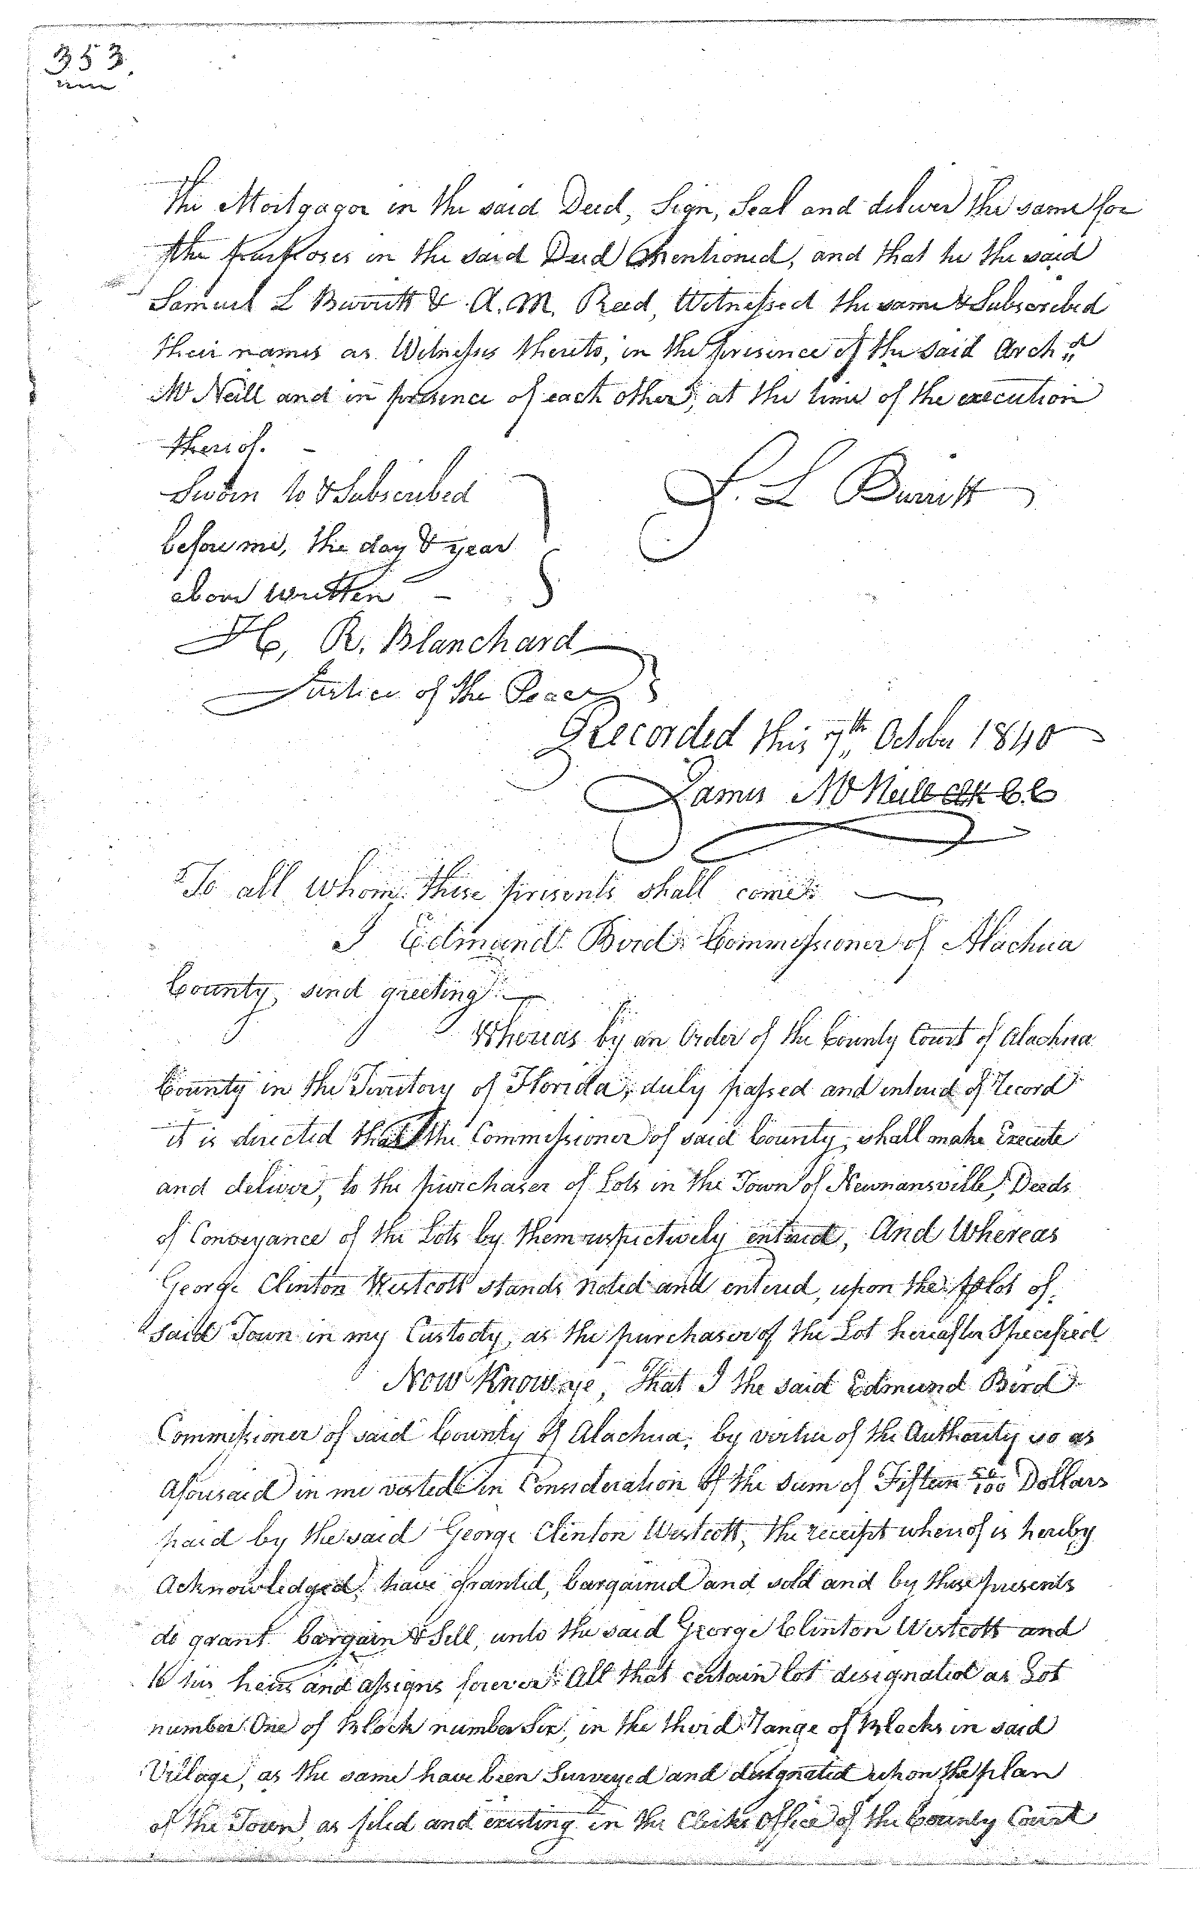 353.
the Mortgagor in the said Deed, Sign, Seal and deliver the same for
the purposes in the said Deed mentioned, and that he the said
Samuel L Burritt & A. M. Reed, Witnessed the same & Subscribed
their names as Witnesses thereto, in the presence of the said Archd
Mc Neill and in presence of each other, at the time of the execution
thereof. –
Sworn to & Subscribed
S. L Burritt
before me, the day & year
above written –
H. R. Blanchard
Justice of the Peace
Recorded this 7th October 1840
James Mc Neill Clk C. C
To all whom these presents shall come:
I Edmund Bird Commissioner of Alachua
County, send greeting –
Whereas by an Order of the County Court of Alachua
County in the Territory of Florida, duly passed and entered of record
it is directed that the Commissioner of said County, shall make Execute
and deliver, to the purchaser of Lots in the Town of Newnansville, Deeds
of Conveyance of the Lots by them respectively entered, And Whereas
George Clinton Westcott stands noted and entered, upon the plot of
said Town in my Custody, as the purchaser of the Lot hereafter Specified
Now Know ye, That I the said Edmund Bird
Commissioner of said County of Alachua, by virtue of the Authority so as
aforesaid in me vested in Consideration of the sum of Fifteen 56/100 Dollars
paid by the said George Clinton Westcott, the receipt whereof is hereby
Acknowledged, have granted, bargained and sold and by these presents
do grant bargain & Sell, unto the said George Clinton Westcott and
to his heirs and assigns forever All that certain lot designated as Lot
number One of Block number Six, in the third range of Blocks in said
Village, as the same have been Surveyed and designated upon the plan
of the Town, as filed and existing in the Clerks Office of the County Court